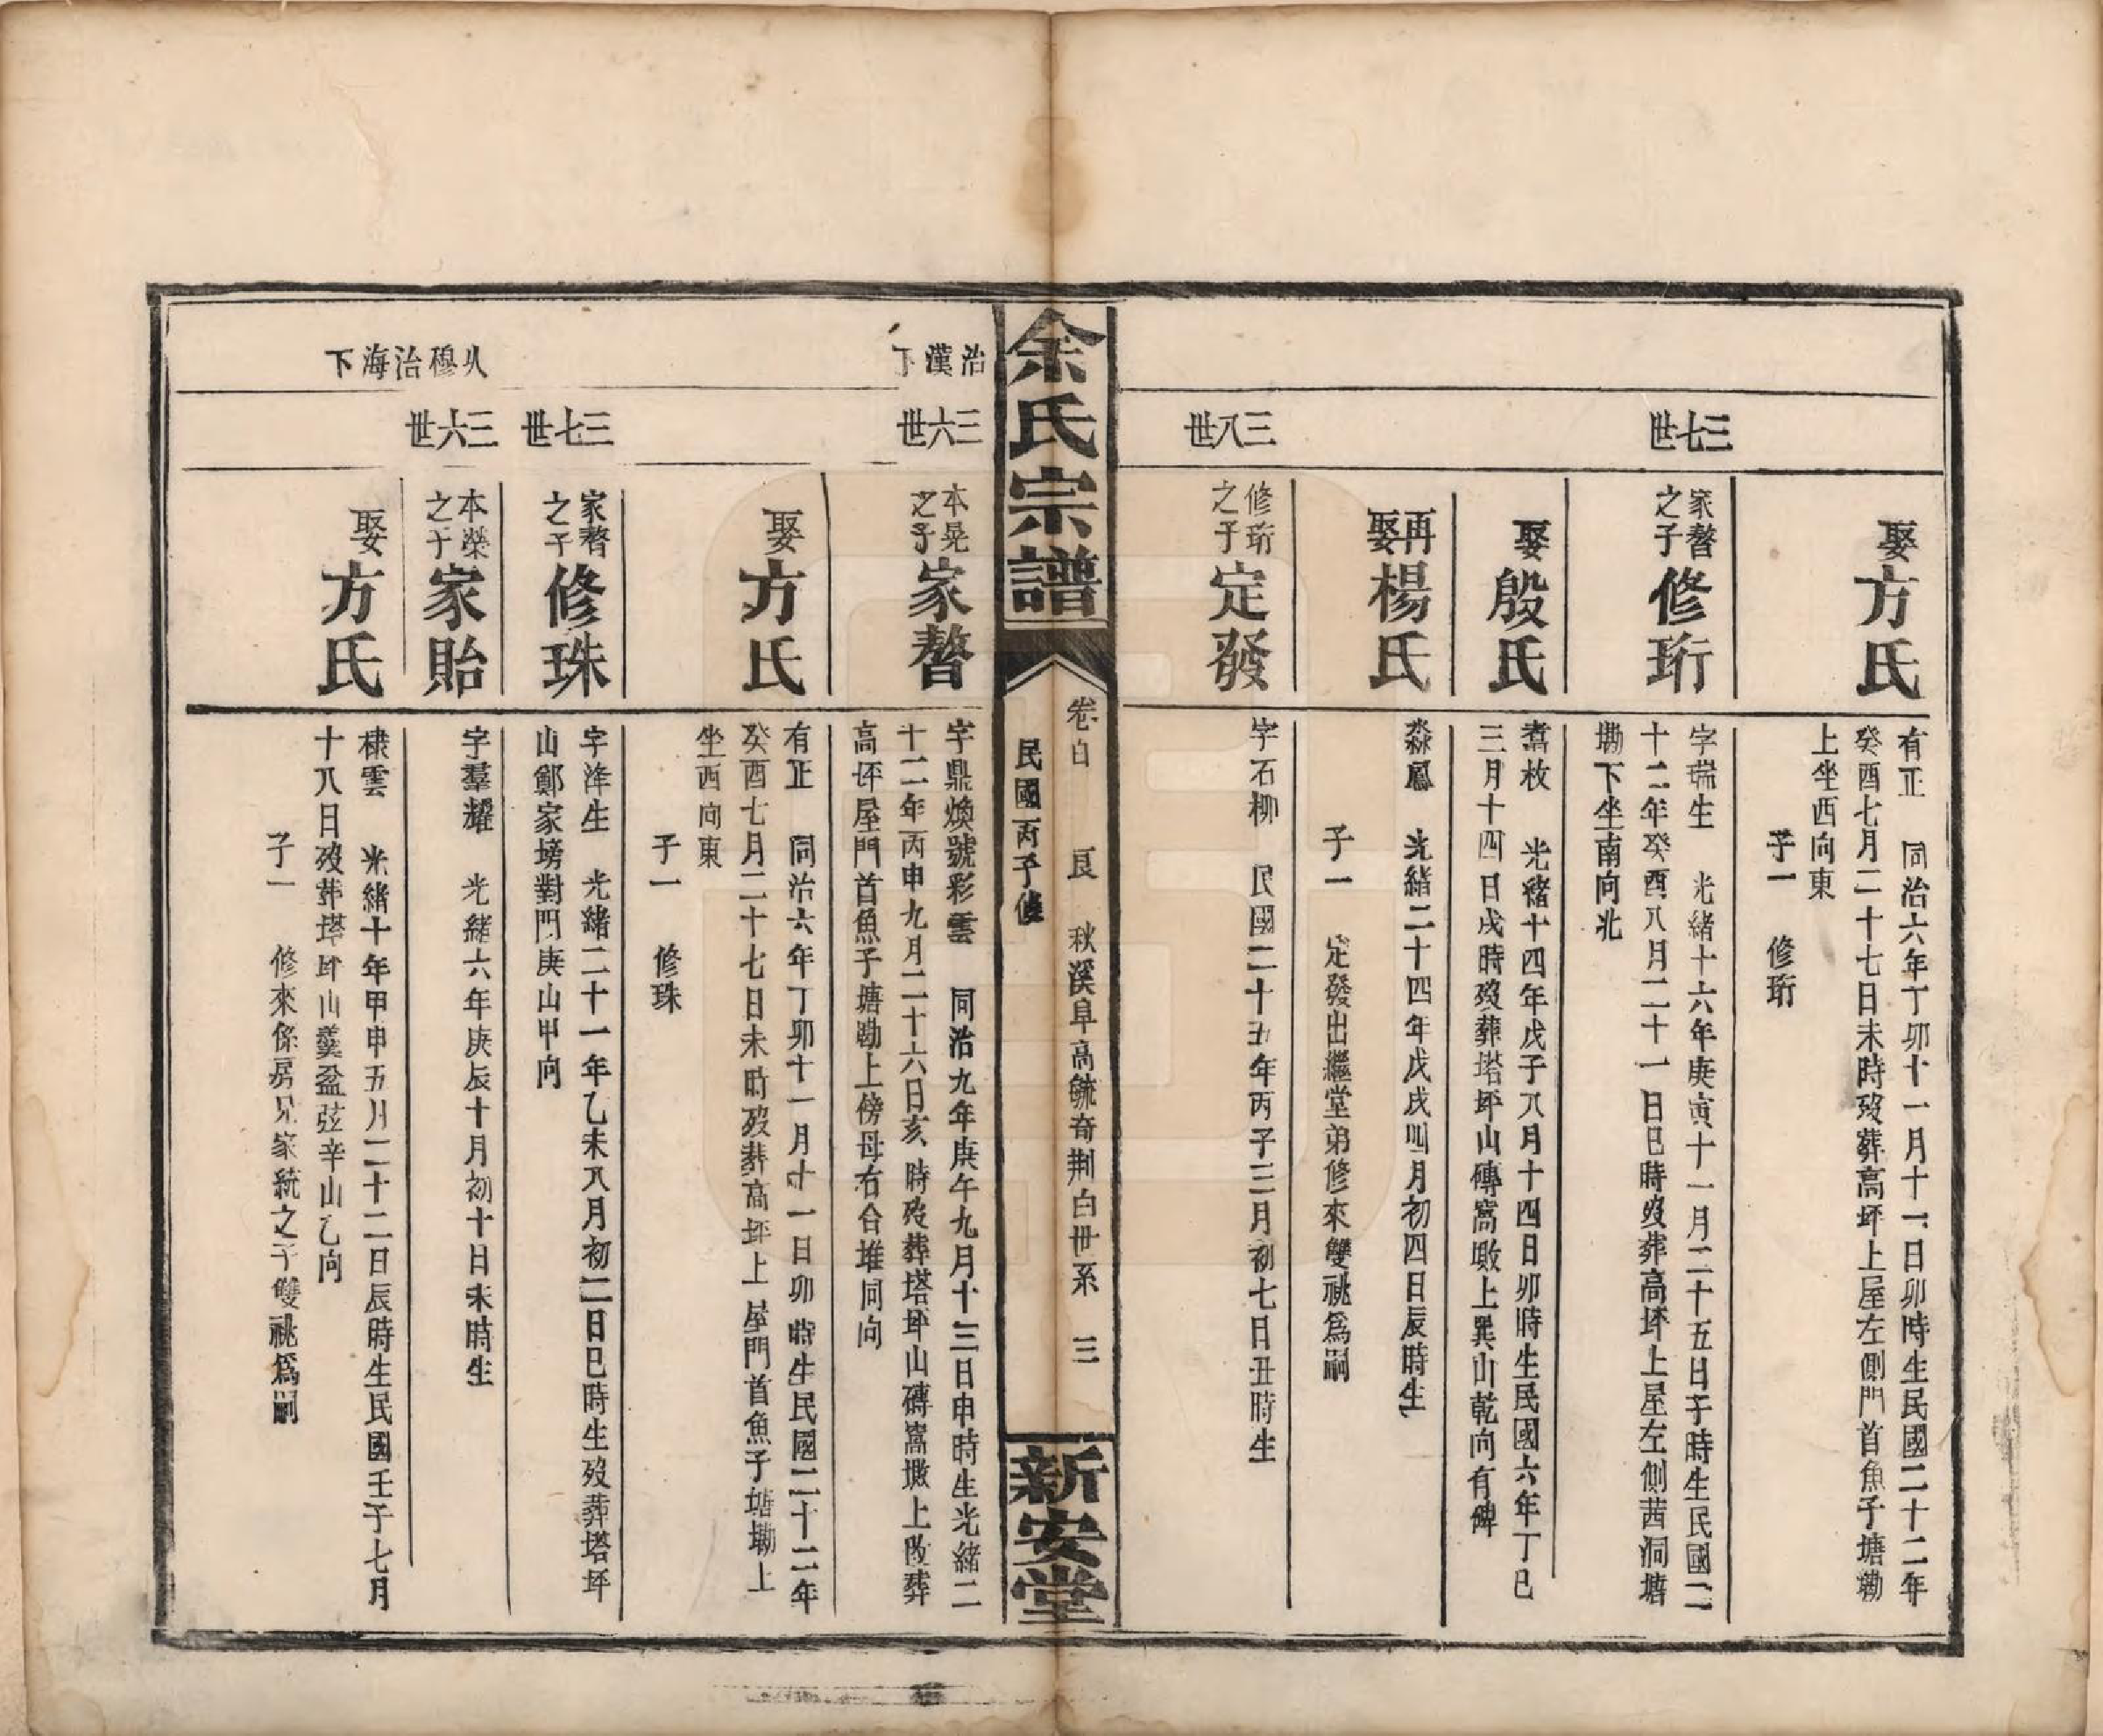 三七世
三八世
娶方氏
有正　同治六年丁卯十一月十一日卯時生民國二十二年
癸酉七月二十七日未時歿葬高坪上屋左側門首魚子塘墈
上坐西向東
子一　修珩
家瞀之子修珩
字瑞生　光緒十六年庚寅十一月二十五日子時生民國二
十二年癸酉八月二十一日巳時歿葬高坪上屋左側茜洞塘
墈下坐南向北
娶殷氏
翥枚　光緒十四年戊子八月十四日卯時生民國六年丁巳
三月十四日戌時歿葬塔坪山磚窩墩上巽山乾向有碑
再娶楊氏
森鳳　光緒二十四年戊戌四月初四日辰時生
子一　定發出繼堂弟修來雙祧爲嗣
修珩之子定發
字石柳　民國二十五年丙子三月初七日丑時生
余氏宗譜
卷白　艮　秋溪阜高毓奇荆白世系　三
民國丙子修
新安堂
治漢下
三六世
本晃之子家瞀
字鼎煥號彩雲　同治九年庚午九月十三日申時生光緒二
十二年丙申九月二十六日亥時歿葬塔坪山磚窩墩上改葬
高坪屋門首魚子塘墈上傍母右合堆同向
娶方氏
有正　同治六年丁卯十一月十一日卯時生民國二十二年
癸酉七月二十七日未時歿葬高坪上屋門首魚子塘墈上
坐西向東
子一　修珠
三七世
家瞀之子修珠
字浲生　光緒二十一年乙未八月初二日巳時生歿葬塔坪
山鄭家塝對門庚山甲向
穆治海下
三六世
本榮之子家貽
字羣耀　光緒六年庚辰十月初十日未時生
娶方氏
棣雲　光緒十年甲申五月二十二日辰時生民國壬子七月
十八日歿葬塔山羹盆弦辛山乙向
子一　修來係房兄家統之子雙祧爲嗣